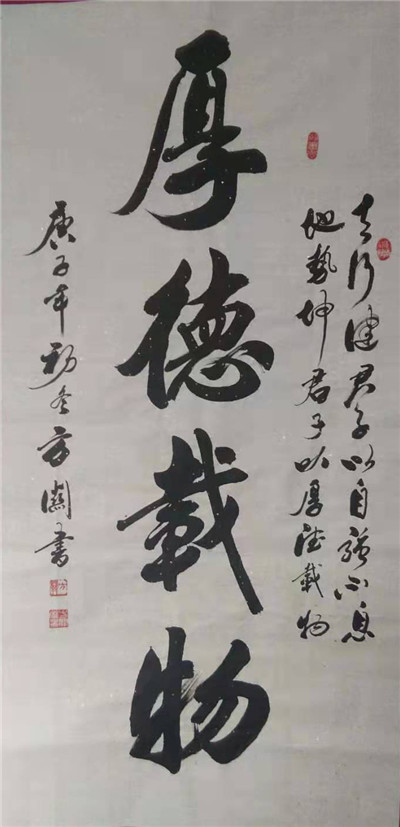 天行健君子以自强不息
地勢坤君子以厚德載物
厚德載物
庚子年初冬方書